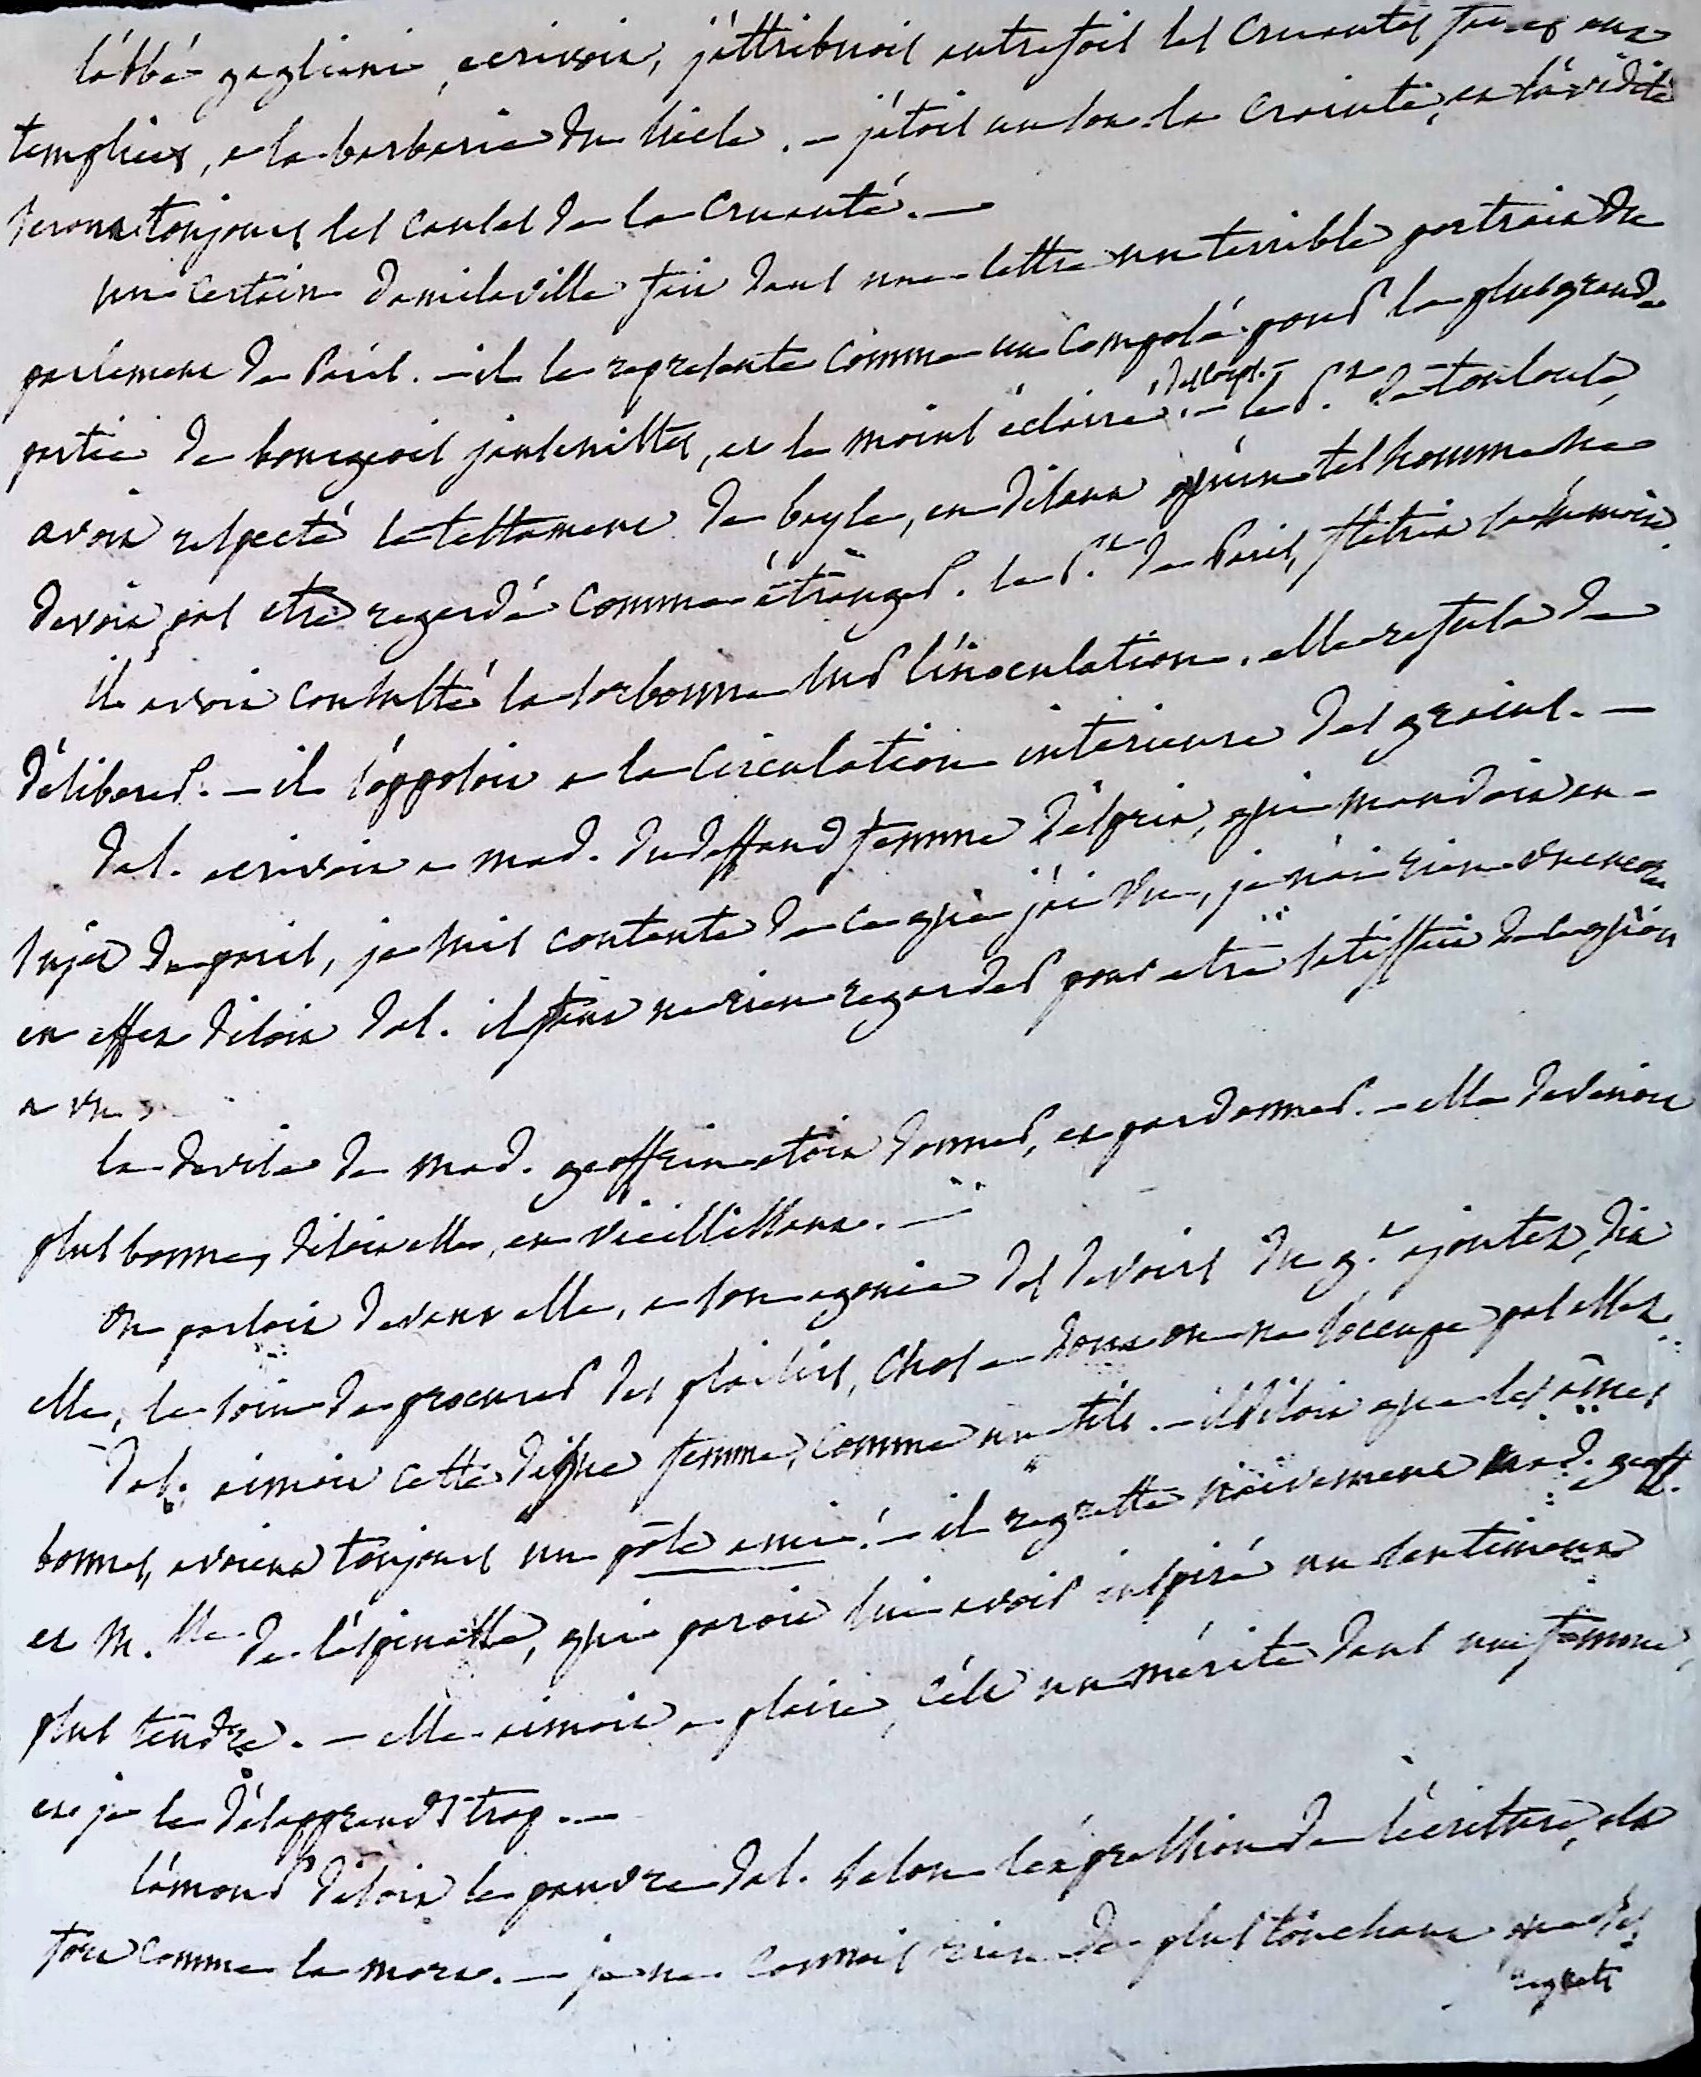 l'abbé gagliani, ecrivoit, j'attribuois autrefois les cruautés faites aux
templiers, a la barbarie du siecle. — j'étois un sot. la crainte, et l'avidité
seront toujours les causes de la cruauté. —
un certain damilaville fait dans une lettre un terrible portrait du
parlement de Paris. — il le represente comme composé pour la plus grande
partie de bourgeois jansenistes, et le moins éclairé des corps. — le P.nt de toulouse,
avoit respecté le testament de bayle, en disant qu'un tel homme ne
devoit pas etre regardé comme étranger. le P.nt de Paris, flétrit sa mémoire.
il avoit consulté la sorbonne sur l'inoculation. elle refusa de
déliberer. — il s'opposoit a la circulation interieure des grains. —
dal. ecrivoit a mad. dudeffand femme d'esprit, qui mandoit en
sujet de paris, je suis contente de ce que j'ai vu, je n'ai rien vu encore
en effet disoit dal. il faut ne rien regarder pour etre satisfait de ce qu'on
a vu.
la devise de mad. geoffrin etoit donner, et pardonner. — elle devenoit
plus bonne, disoit elle, en vieillissant. —
on parloit devant elle, a son agonie des devoirs du g.t ajoutez, dit
elle, le soin de procurer des plaisirs, chose dont on ne s'occupe pas assez.
dal. aimoit cette digne femme, comme un fils. — il disoit que les âmes
bonnes, avoient toujours un pôle ami. — il regrette naivement mad. geoff.
et M.lle de l'espinasse, qui paroit lui avoir inspiré un sentiment
plus tendre. — elle aimoit a plaire, c'est un mérite dans une femme,
et je le désapprends trop. —
l'amour disoit le pauvre dal. selon l'expression de l'écriture, est
fort comme la mort. — je ne connois rien de plus touchant que ses
regrets